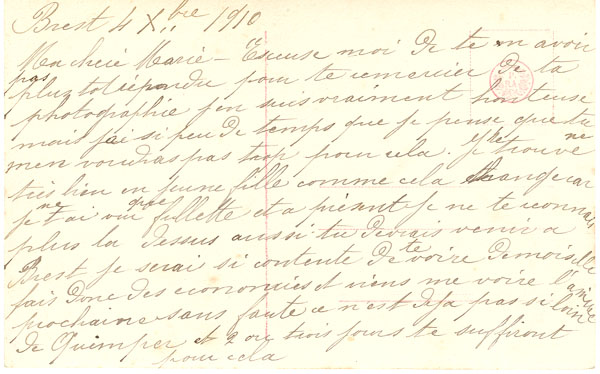 Brest 4 Xbre 1910
Ma cheie Marie - Excuse moi de te m avoir
pas plus tot répondu pour te remercier de ta
photographie j'en suis vraiment honteuse
mais j'ai si peu de temps que je pense que tu
men voudras pas trop pour cela. je te trouve
très bien en jeune fille comme cela change car
je ne t'ai vu que fillette et a présent je ne te reconnais
plus la dessus aussi tu devrais venir a
Brest je serai si contente de te voire demoiselle
fais donc des economies et viens me voire l'année
prochaine sans faute ce n'est deja pas si loin
de Quimper et 2 ou trois jours te suffiront
pour cela